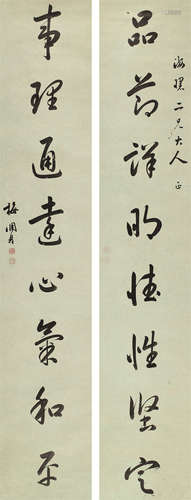 二兄大人 正
品節詳明德性堅定
事理通達心氣和平
梅調鼎